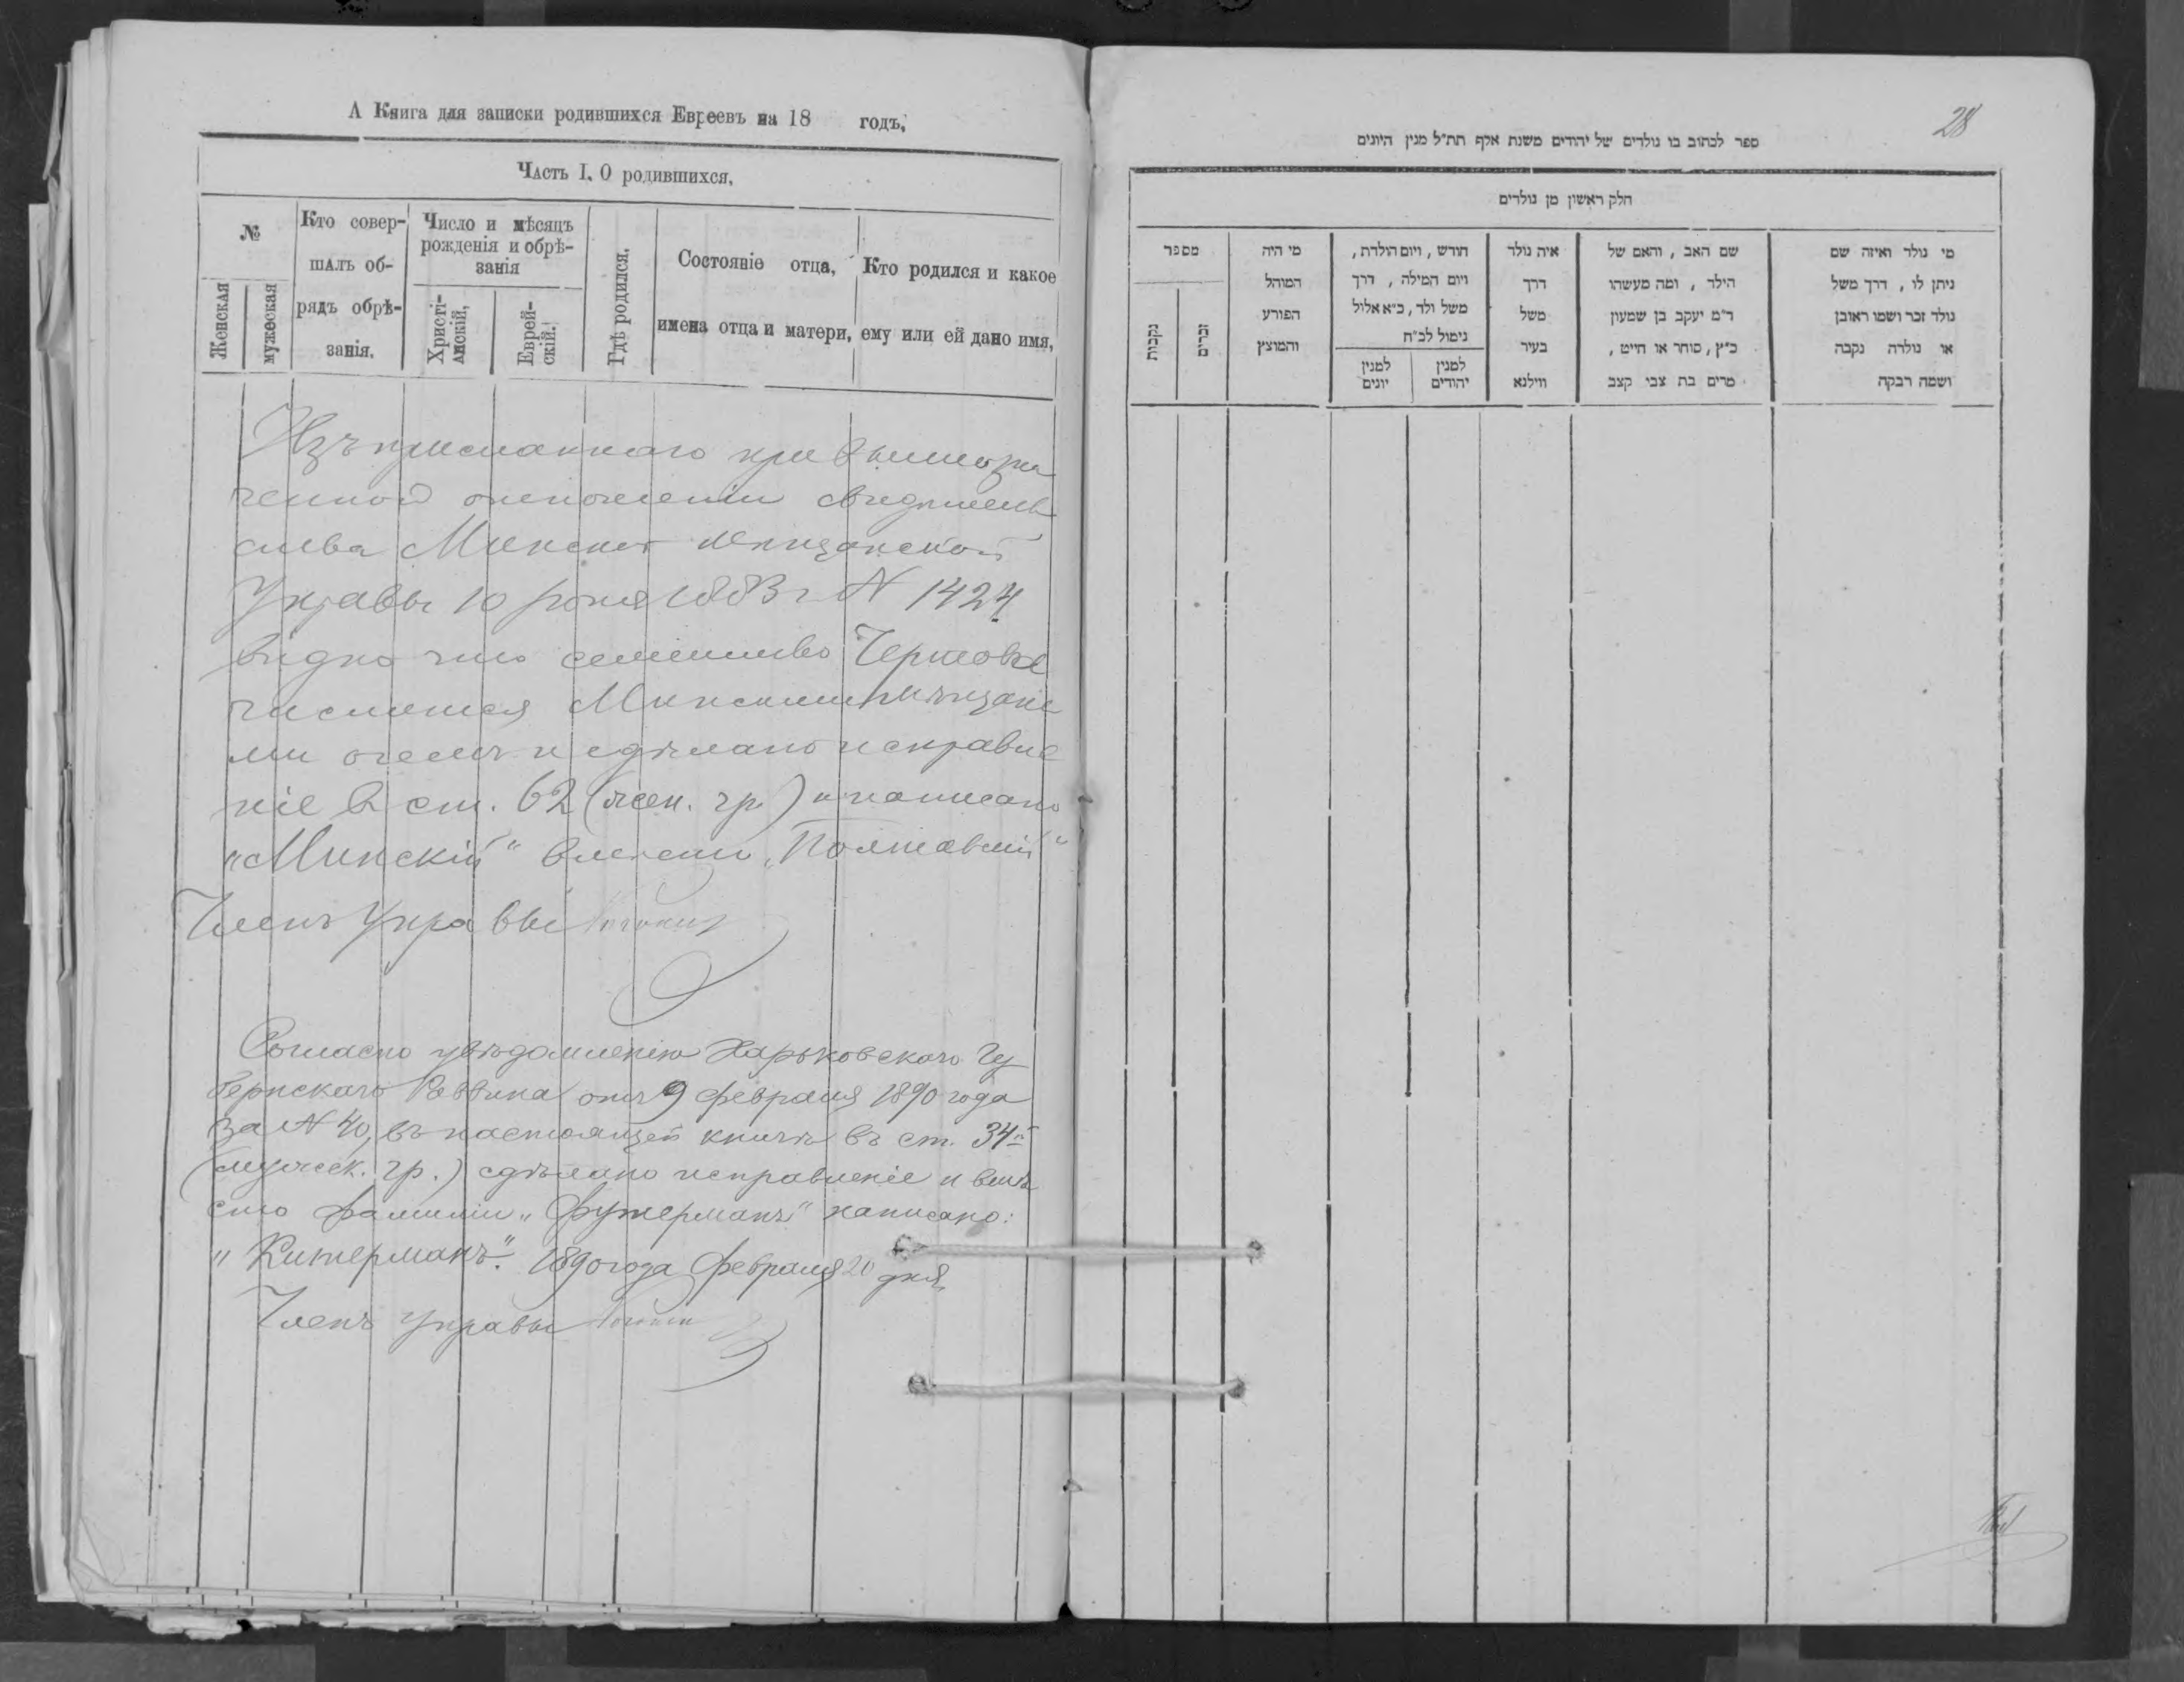 А Книга для записки родившихся Евреевъ на 18 годъ,
Часть I. О родившихся.
№
Женская
мужеская
Кто совер-
шалъ об-
рядъ обрѣ-
занія.
Число и мѣсяцъ
рожденія и обрѣ-
занія
Христі-
анскій,
Еврей-
скій.
Гдѣ родился.
Состояніе отца,
имена отца и матери,
Кто родился и какое
ему или ей дано имя,
Изъ присланнаго при вышеозна
ченной отношеніи свидѣтель
ства Минской мѣщанской
Управы 10 1883 г № 1424
видно что семейство
числится Минскими мѣщана
ми о чемъ и сдѣлано исправле
ніе в ст. 62 (жен. гр.) и написано
"Минскій" вместо „Полтавскій"
Членъ Управы
Согласно увѣдомленію Харьковскаго Гу
бернскаго Раввина отъ 9 февраля 1890 года
за № 40, въ настоящей книгѣ въ ст. 34й
(мужеск. гр.) сдѣлано исправленіе и вмѣ
сто фамиліи „Футерманъ" написано:
"Китерманъ". 1890 года февраля 20 дня
Членъ управы
28
ספר לכתוב בו נולדים של יהודים משנת אלף תת״ל מנין היונים
חלק ראשון מן נולדים
מספר
נקבות
זכרים
מי היה
המוהל
הפורע
והמוצץ
חודש, ויום הולדת,
ויום המילה, דרך
משל ולד, כ״א אלול
נימול לכ״ח
למנין
יונים
למנין
יהודים
איה נולד
דרך
משל
בעיר
ווילנא
שם האב, והאם של
הילד, ומה מעשהו
ד״מ יעקב בן שמעון
כ״ץ, סוחר או חייט,
מרים בת צבי קצב
מי נולד ואיזה שם
ניתן לו, דרך משל
נולד זכר ושמו ראובן
או נולדה נקבה
ושמה רבקה